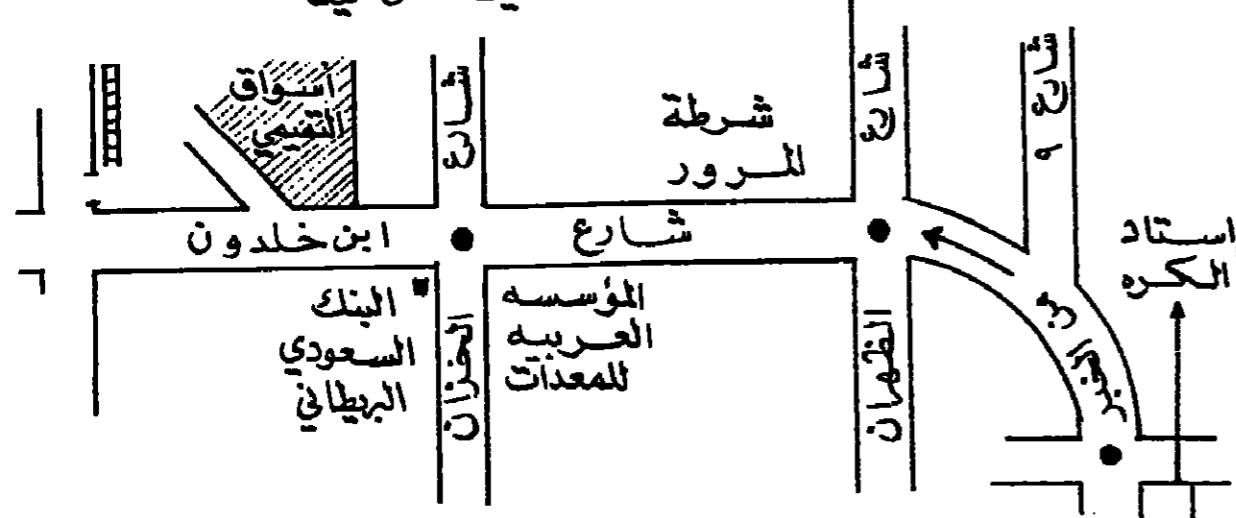 أسواق
التميمي
شارع
شرطة
المرور
شارع
شارع ٩
استاد
الكره
ابن خلدون
شارع
من الخبر
البنك
السعودي
البريطاني
الخزان
المؤسسه
العربيه
للمعدات
الظهران